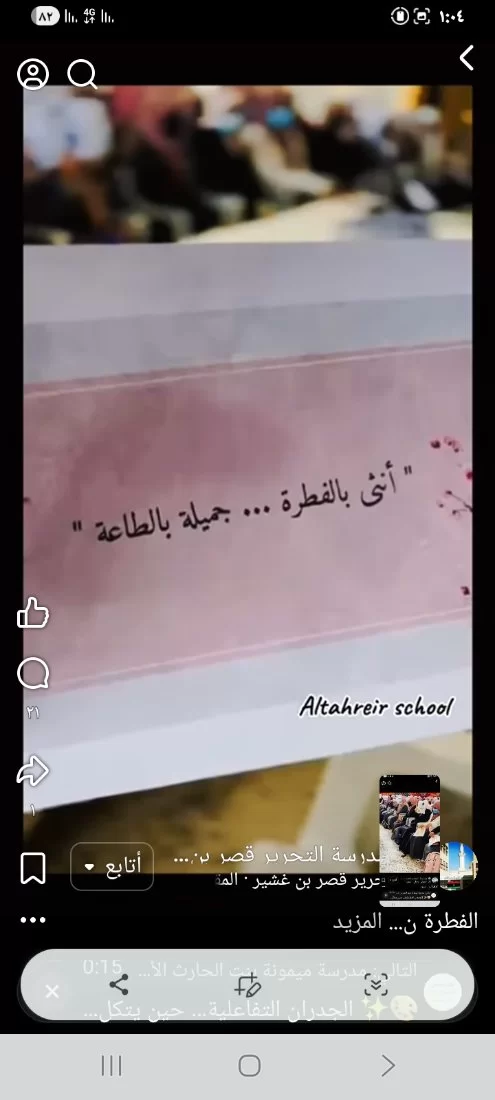 ٨٢
4G
١:٠٤
" أنثى بالفطرة ... جميلة بالطاعة "
Altahreir school
٢١
١
مدرسة التحرير قصر بن...
أتابع
تحرير قصر بن غشير ·
الفطرة ن... المزيد
مدرسة ميمونة بنت الحارث الأ...
0:15
الجدران التفاعلية... حين يتكل...